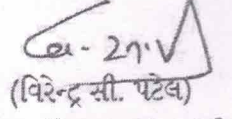 (विरेन्द्र सी. पटेल)